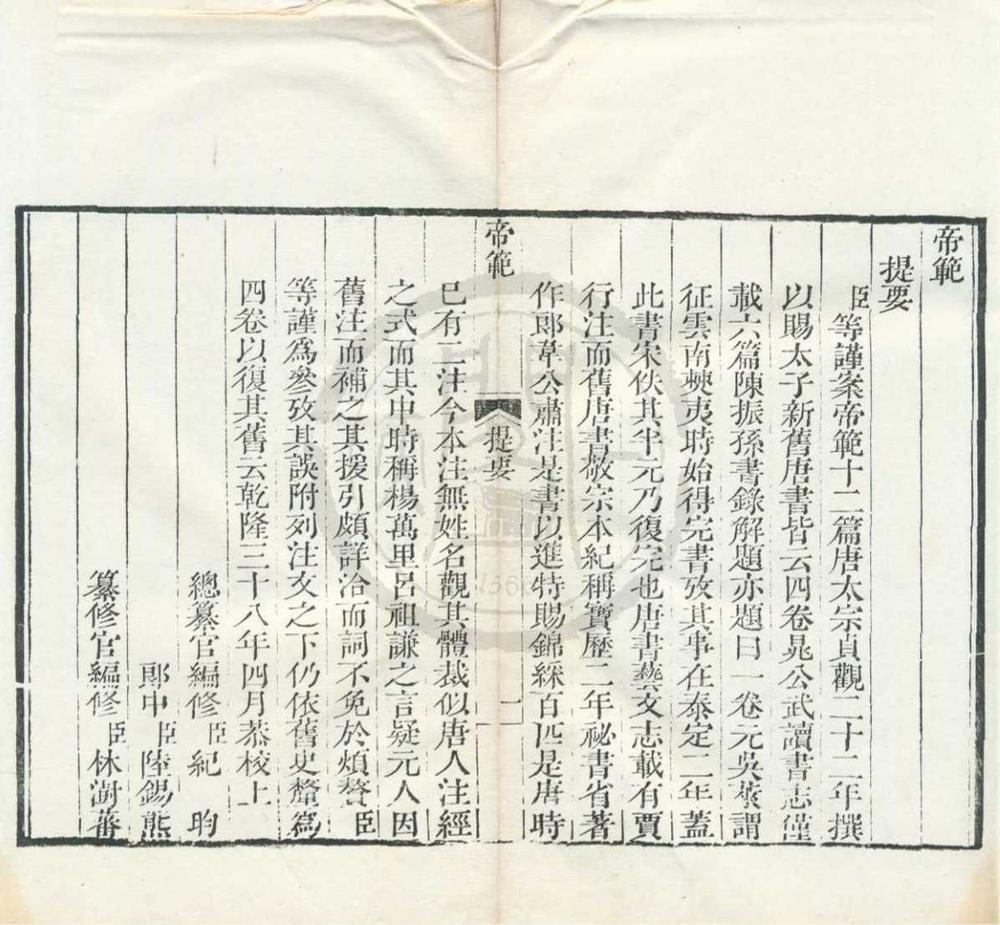 帝範
提要
臣等謹案帝範十二篇唐太宗貞觀二十二年撰
以賜太子新舊唐書皆云四卷晁公武讀書志僅
載六篇陳振孫書錄解題亦題曰一卷元吳萊謂
征雲南僰夷時始得完書攷其事在泰定二年蓋
此書宋佚其半元乃復完也唐書藝文志載有賈
行注而舊唐書敬宗本紀稱寶歷二年祕書省著
作郎韋公肅注是書以進特賜錦綵百匹是唐時
帝範
提要
一
已有二注今本注無姓名觀其體裁似唐人注經
之式而其中時稱楊萬里呂祖謙之言疑元人因
舊注而補之其援引頗詳洽而詞不免於煩贅臣
等謹爲參攷其誤附列注文之下仍依舊史釐爲
四卷以復其舊云乾隆三十八年四月恭校上
總纂官編修臣紀昀
郎中臣陸錫熊
纂修官編修臣林澍蕃